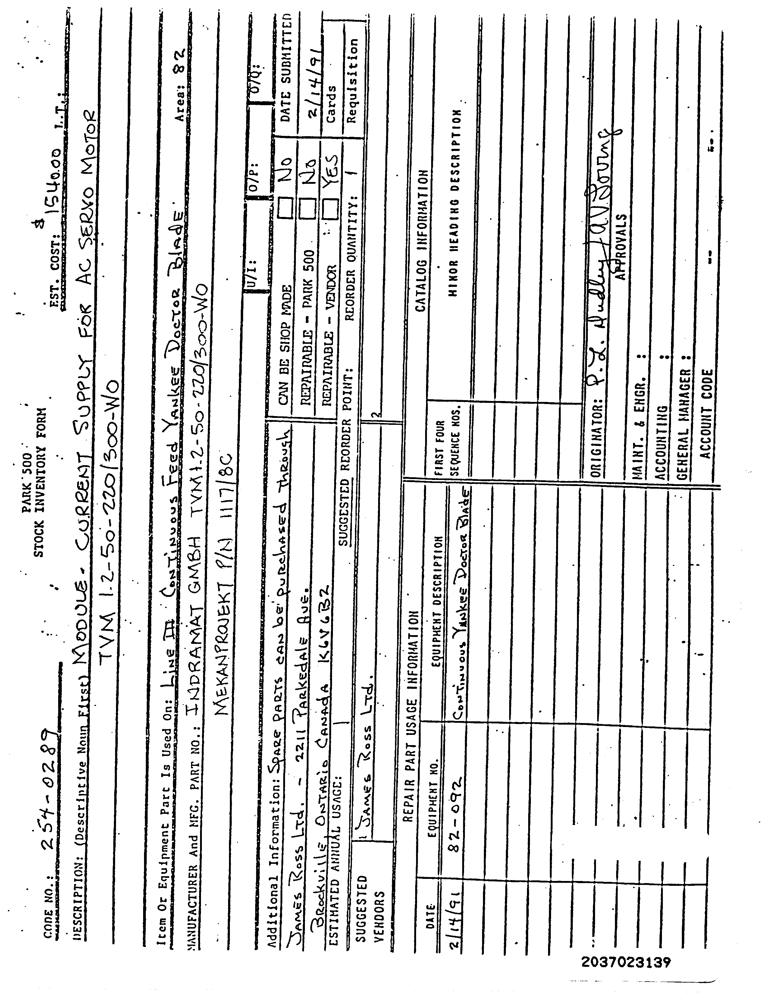 PARK 500
STOCK INVENTORY FORM
CODE NO.: 254-0289
EST. COST: $ 1540.00 L.T.:
DESCRIPTION: (Descriptive Noun First) MODULE - CURRENT SUPPLY FOR AC SERVO MOTOR
TVM 1.2-50-220/300-WO
Item Or Equipment Part Is Used On: LINE III CONTINUOUS FEED YANKEE DOCTOR BLADE Area: 82
MANUFACTURER And MFG. PART NO.: INDRAMAT GMBH TVM1.2-50-220/300-WO
MEKANPROJEKT P/N 1117/8C
U/I: O/P: O/Q:
Additional Information: SPARE PARTS CAN BE purchased through
JAMES ROSS LTD. - 2211 PARKEDALE AVE.
BROCKVILLE, ONTARIO CANADA K6V6B2
CAN BE SHOP MADE NO
REPAIRABLE - PARK 500 NO
REPAIRABLE - VENDOR YES
DATE SUBMITTED
2/14/91
Cards
Requisition
ESTIMATED ANNUAL USAGE: 1 SUGGESTED REORDER POINT: REORDER QUANTITY: 1
SUGGESTED VENDORS
1 JAMES ROSS LTD.
2
REPAIR PART USAGE INFORMATION
DATE EQUIPMENT NO. EQUIPMENT DESCRIPTION
2/14/91 82-092 CONTINUOUS YANKEE DOCTOR BLADE
CATALOG INFORMATION
FIRST FOUR
SEQUENCE NOS.
MINOR HEADING DESCRIPTION
ORIGINATOR: P. L. Dudley /
APPROVALS
MAINT. & ENGR. :
ACCOUNTING :
GENERAL MANAGER :
ACCOUNT CODE -- --
2037023139